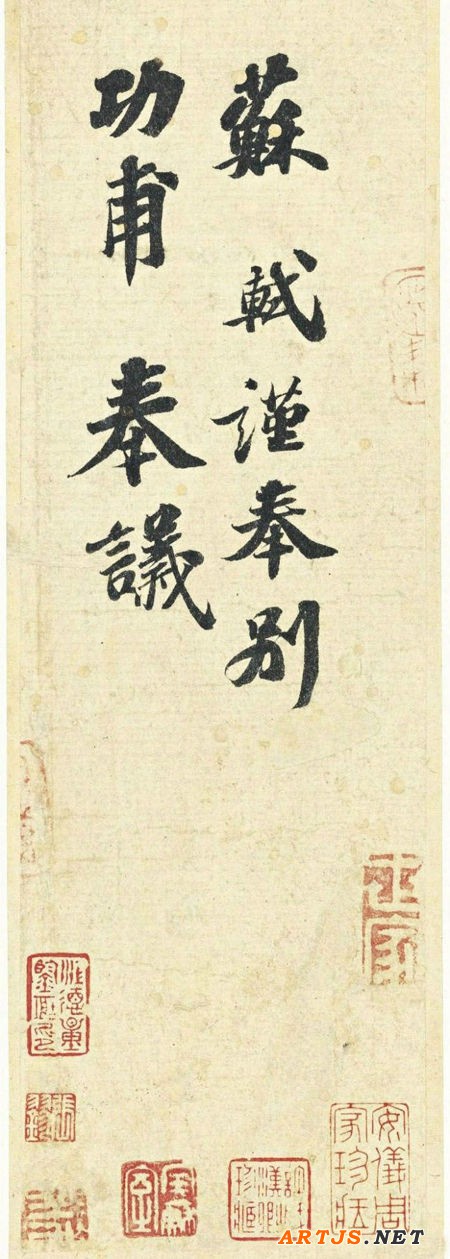 蘇軾謹奉別
功甫奉議
安儀周家珍藏
ARTJS.NET